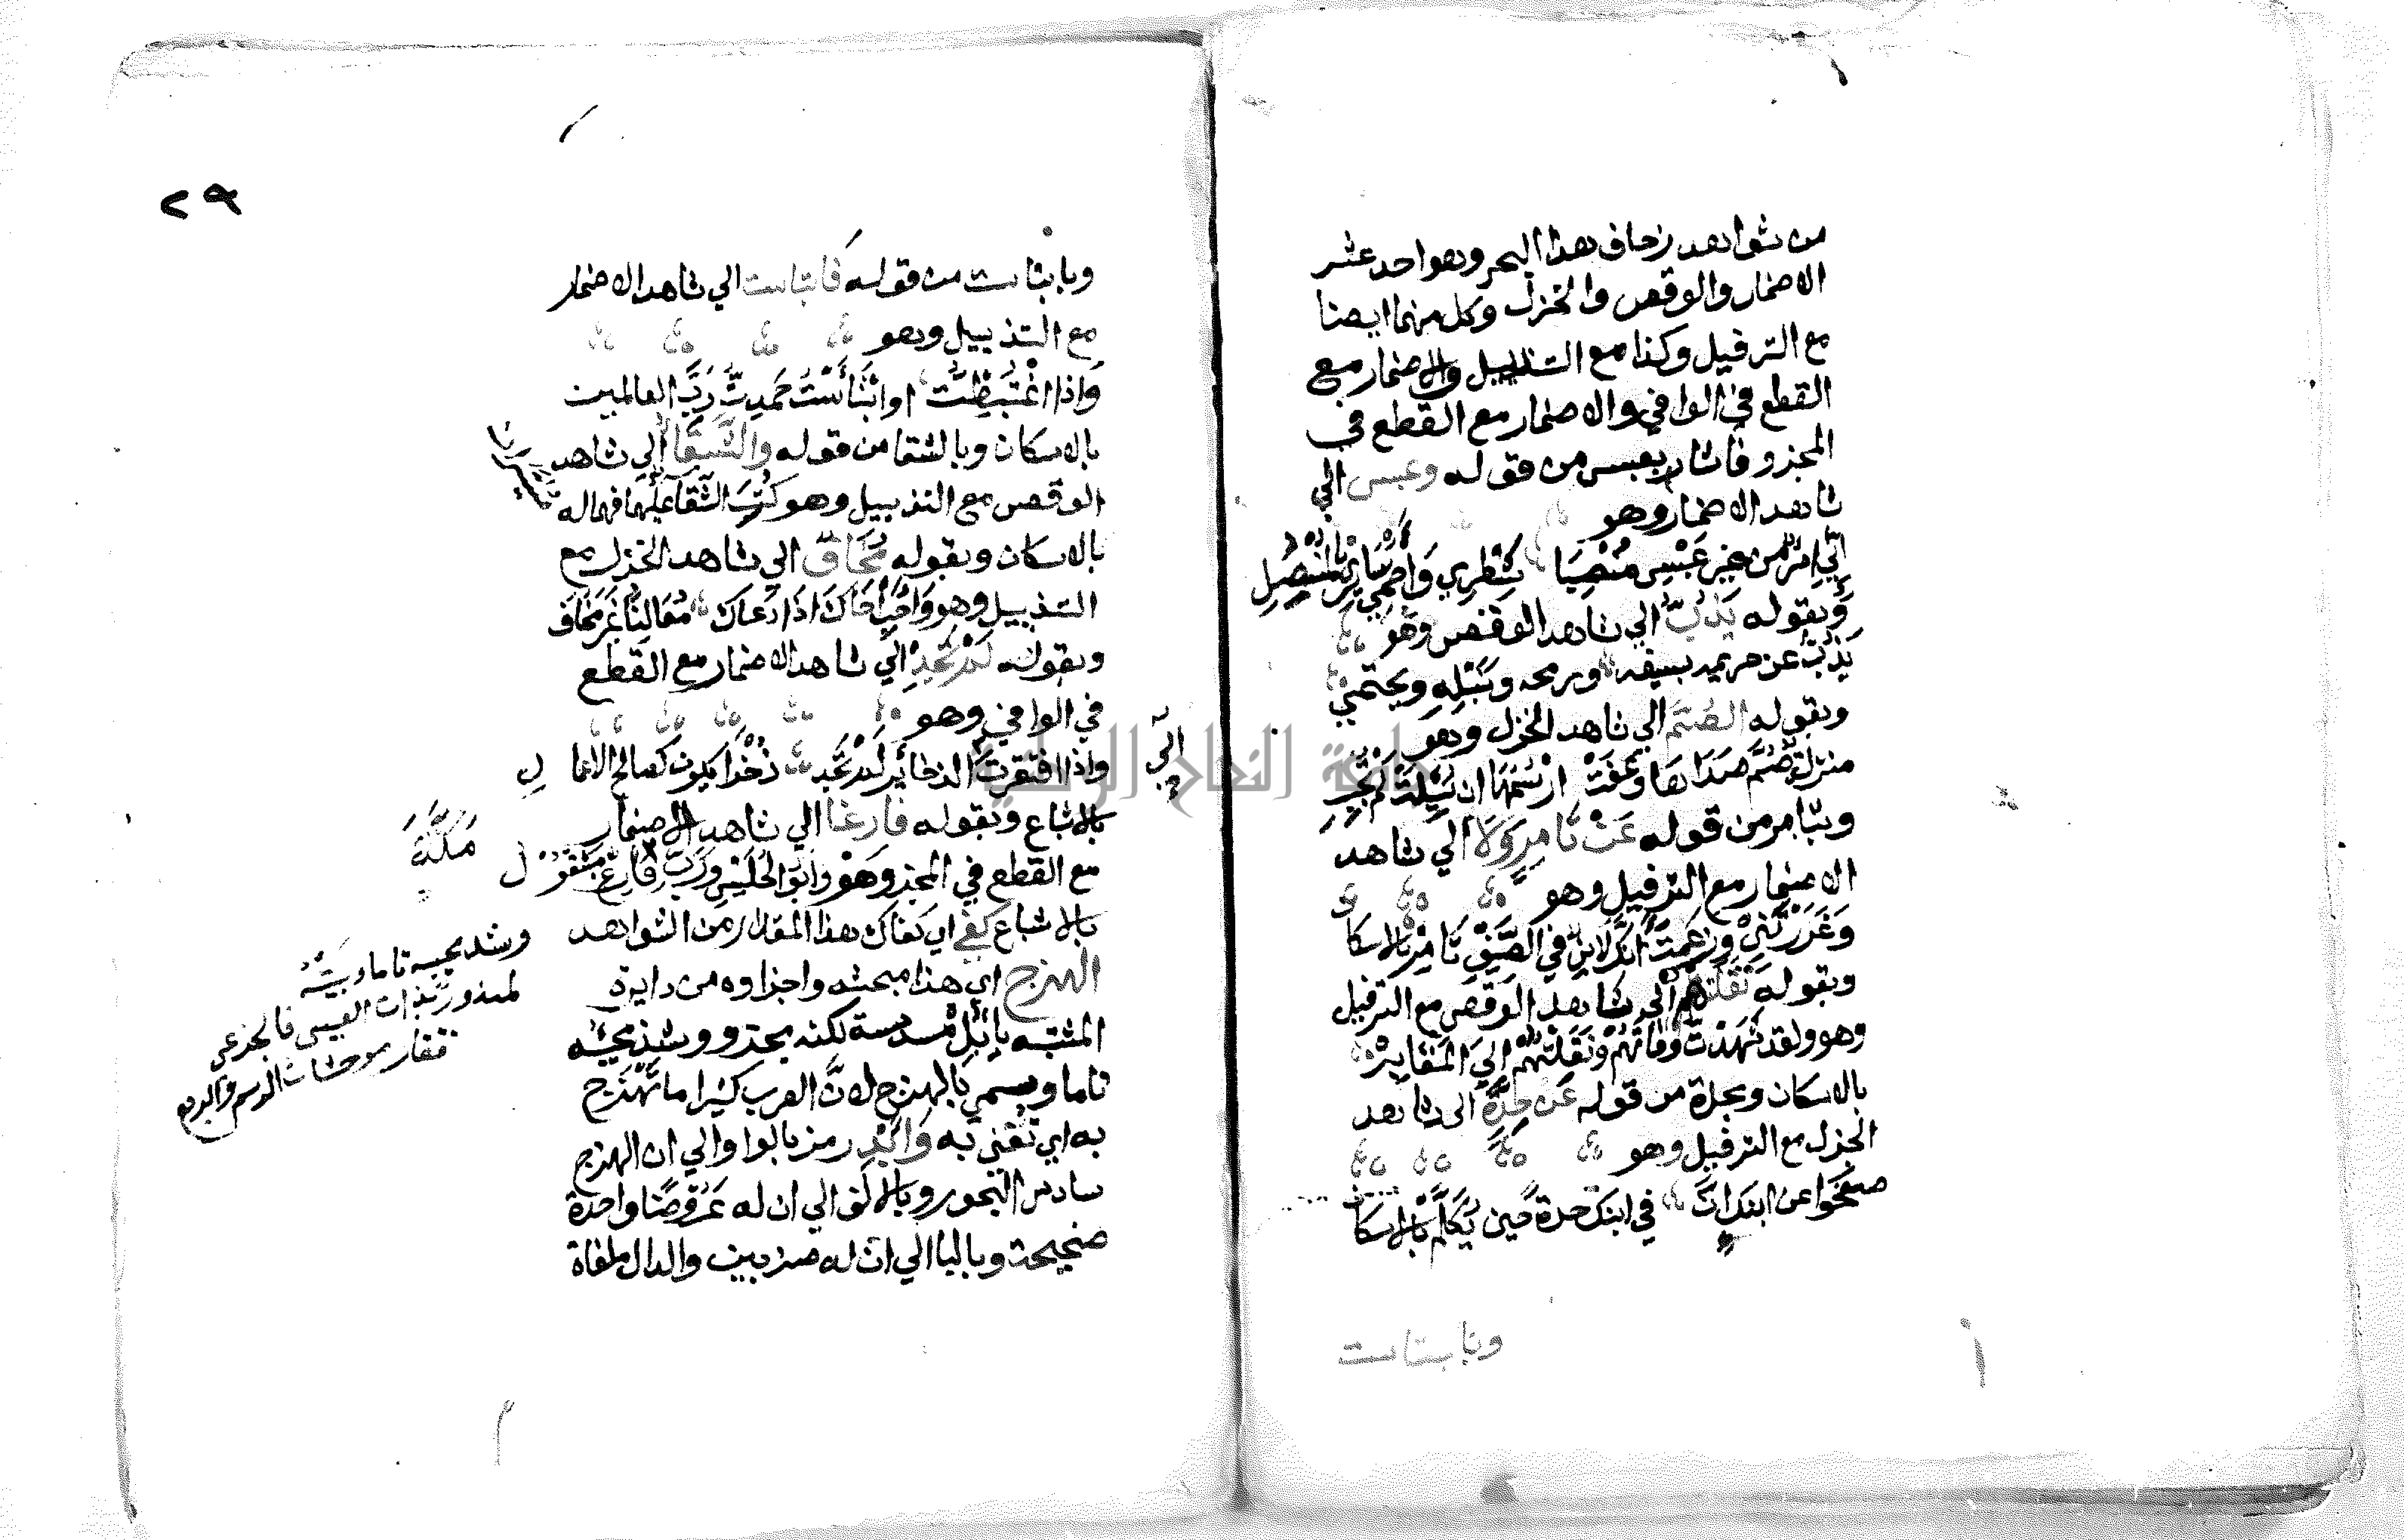 من شواهد زحاف هذا البحر وهو احد عشر
الاضمار والوقص والخزل وكل منهما ايضا
مع الترفيل وكذا مع التذييل والاضمار مع
القطع في الوافي والاضمار مع القطع في
المجزو فاشار بعبس من قوله وعبس الي
شاهد الاضمار وهو
اني امرؤ من خير عبس منصبا شطري واحمي سائري بالمنصل
وبقوله يذب الي شاهد الوقص وهو
يذب عن حريمه بسيفه ورمحه ونبله ويحتمي
وبقوله الصتم الي شاهد الخزل وهو
منزلة صم صداها وعفت ارسمها ان سيلت لم تجب
وبتامر من قوله عن تامر ولا الي شاهد
الاضمار مع الترفيل وهو
وغررتني وزعمت انك لابن في الصيف تامر بالاسكا
وبقوله نقلتهم الي شاهد الوقص مع الترفيل
وهو ولقد شهدت وفاتهم ونقلتهم الي المقابر
بالاسكان وبجدة من قوله عن جدة الي شاهد
الجزل مع الترفيل وهو
صفحوا عن ابنك ان في ابنك حدة حين يكلم بالاسكا
وبابتاست
٢٩
وبابتاست من قوله فابتاست الي شاهد الاضمار
مع التذييل وهو
واذا اغتبطت او ابتأست حمدت رب العالمين
بالاسكان وبالشقا من قوله والشقا الي شاهد
الوقص مع التذييل وهو كتب الشقا عليهما فهما له
بالاسكان وبقوله تخاف الي شاهد الخزل مع
التذييل وهو واجب اخاك اذا دعاك معالنا غير مخاف
وبقوله لم تجد الي شاهد الاضمار مع القطع
في الوافي وهو
واذا افتقرت الي الذخائر لم تجد ذخرا يكون كصالح الاعمال
بالاشباع وبقوله فارغا الي شاهد الاضمار
مع القطع في المجزو وهو وابو الحليس ورب مكة فارغ مشغول
بالاشباع كفي اي كفاك هذا المقدار من الشواهد
الهزج اي هذا مبحثه واجزاوه من دايرة
المشتبه بابل مسدسة لكنه مجزو وشذ مجيئه
تاما وسمي بالهزج لان العرب كثيرا ما تهزج
به اي تغني به وابد رمز بالواو الي ان الهزج
سادس البحور وبالالف الي ان له عروضا واحدة
صحيحة وبالبا الي ان له ضربين والدال ملغاة
وشذ مجيه تاما وبيته